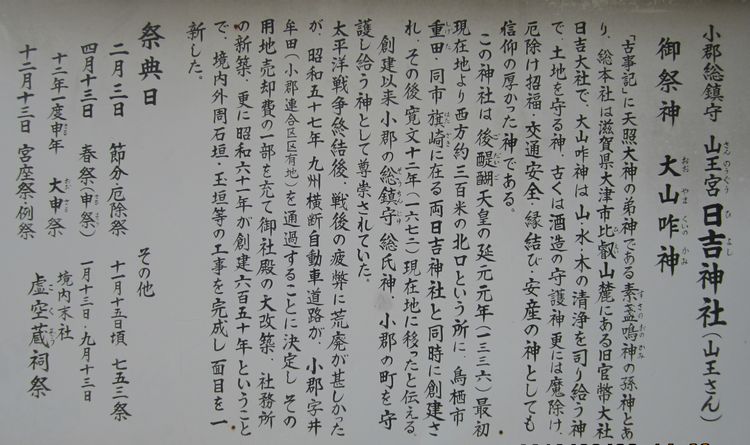 小郡総鎮守 山王宮日吉神社(山王さん)
御祭神 大山咋神
「古事記」に天照大神の弟神である素盞嗚神の孫神とあ
り、総本社は滋賀県大津市比叡山麓にある旧官幣大社
日吉大社で、大山咋神は山・水・木の清浄を司り給う神
で、土地を守る神、古くは酒造の守護神更には魔除け、
厄除け招福・交通安全・縁結び・安産の神としても
信仰の厚かった神である。
この神社は後醍醐天皇の延元元年(一三三六)最初
現在地より西方約三百米の北口という所に、鳥栖市
重田・同市旗崎に在る両日吉神社と同時に創建さ
れ、その後寛文十二年(一六七二)現在地に移ったと伝える。
創建以来小郡の総鎮守総氏神、小郡の町を守
護し給う神として尊崇されていた。
太平洋戦争終結後、戦後の疲弊に荒廃が甚しかった
が、昭和五十七年九州横断自動車道路が、小郡字井
牟田(小郡連合区区有地)を通過することに決定しその
用地売却費の一部を充て御社殿の大改築、社務所
の新築、更に昭和六十一年が創建六百五十年ということ
で、境内外周石垣・玉垣等の工事を完成し面目を一
新した。
祭典日
二月三日 節分厄除祭
四月十三日 春祭(申祭)
十二年一度申年 大申祭
十二月十三日 宮座祭例祭
その他
十一月十五日頃 七五三祭
一月十三日・九月十三日
境内末社
虚空蔵祠祭